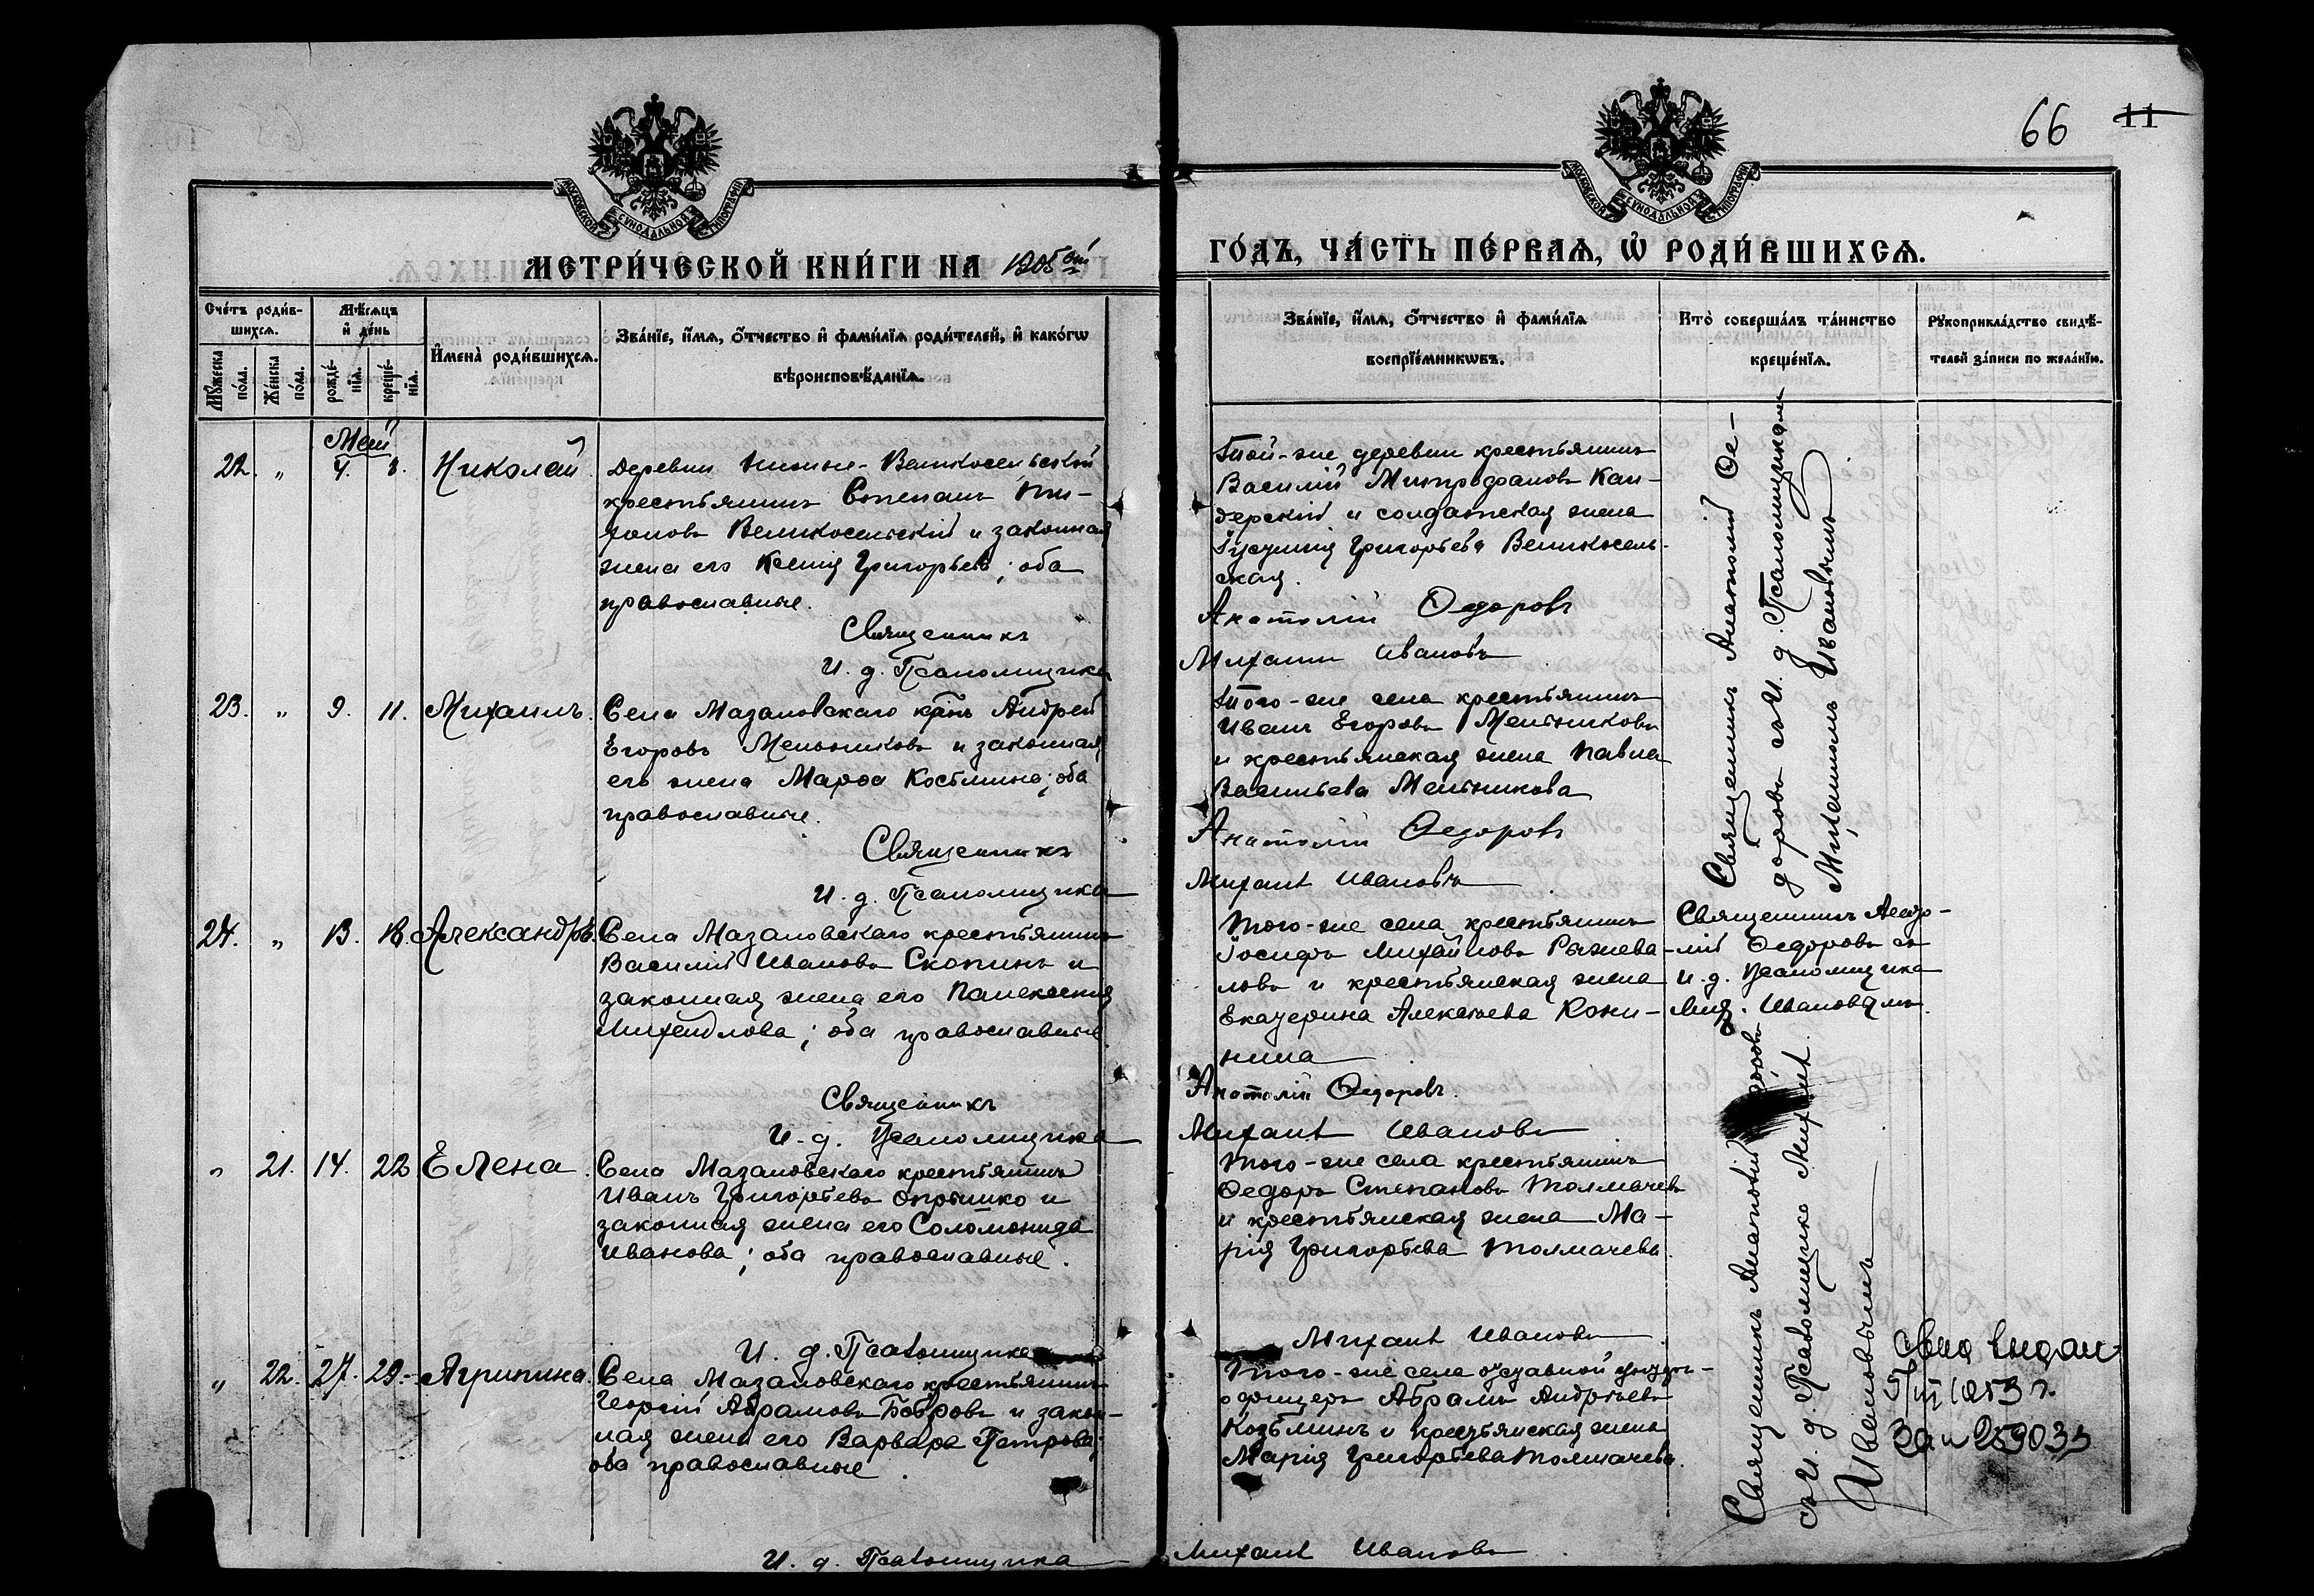 66 11
МОСКОВСКОЙ СѴНОДАЛЬНОЙ ТИПОГРАФІИ
МОСКОВСКОЙ СѴНОДАЛЬНОЙ ТИПОГРАФІИ
МЕТРИ́ЧЕСКОЙ КНИ́ГИ НА 1905 ый
ГО́ДЪ, ЧА́СТЬ ПЕ́РВАѦ, Ѡ҆ РОДИ́ВШИХСѦ.
Сче́тъ роди́в-
шихсѧ.
Мꙋ́жеска по́ла.
Же́нска по́ла.
Мѣ́сѧцъ
и҆ де́нь
рожде́-
нїѧ.
креще́-
нїѧ.
И҆мена̀ роди́вшихсѧ.
Зва́нїе, и҆́мѧ, ѻ҆́тчество и҆ фами́лїѧ роди́телей, и҆ како́гѡ
вѣроисповѣ́данїѧ.
Зва́нїе, и҆́мѧ, ѻ҆́тчество и҆ фами́лїѧ
воспрїе́мникѡвъ.
Кто̀ соверша́лъ та́инство
креще́нїѧ.
Рꙋкоприкла́дство свидѣ́-
телей за́писи по жела́нїю.
Май
22. „ 4. 8. Николай
Деревни Нижне-Великосельской
крестьянинъ Степанъ
Великосельскій и законная
жена его Ксенія Григорьева; оба
православные.
Священникъ
И. д. Псаломщика
Той-же деревни крестьянинъ
Василій Митрофановъ Кан-
дерскій и солдатская жена
Григорьева Великосель-
ская.
Анатолій Ѳедоровъ
Михаилъ Ивановъ
Священникъ Анатолій Ѳе-
доровъ съ И. д. Псаломщикомъ
Михаиломъ Ивановымъ
23. „ 9. 11. Михаилъ.
Села Мазановскаго кр-нъ Андрей
Егоровъ Мельниковъ и законная
его жена Марѳа Костьмина; оба
православные.
Священникъ
И. д. Псаломщика
Того-же села крестьянинъ
Иванъ Егоровъ Мельниковъ
и крестьянская жена Павла
Васильева Мельникова
Анатолій Ѳедоровъ
Михаилъ Ивановъ
24. „ 13. 18. Александръ.
Села Мазановскаго крестьянинъ
Василій Ивановъ Скопинъ и
законная жена его
Михайлова; оба православные
Священникъ
И. д. Псаломщика
Того-же села крестьянинъ
Іосифъ Михайловъ
ловъ и крестьянская жена
Екатерина Алексѣева Кони-
нина
Анатолій Ѳедоровъ.
Михаилъ Ивановъ
Священникъ Анато-
лій Ѳедоровъ съ
И. д. Псаломщика
Мих. Ивановымъ.
„ 21. 14. 22 Елена.
Села Мазановскаго крестьянинъ
Иванъ Григорьевъ Опрышко и
законная жена его Соломонида
Иванова; оба православные.
И. д. Псаломщика
Того-же села крестьянинъ
Ѳедоръ Степановъ Толмачевъ
и крестьянская жена Ма-
рія Григорьева Толмачева.
Михаилъ Ивановъ
Священникъ Анатолій
съ И. д. Псаломщика Михаил.
Ивановымъ
„ 22. 27. 29. Агрипина.
Села Мазановскаго крестьянинъ
Георгій Абрамовъ Бобровъ и закон-
ная жена его Варвара Петрова;
оба православные.
И. д. Псаломщика
Того-же села унтеръ-
офицеръ Абрамъ Андреевъ
Козьминъ и крестьянская жена
Марія Григорьева Толмачева.
Михаилъ Ивановъ